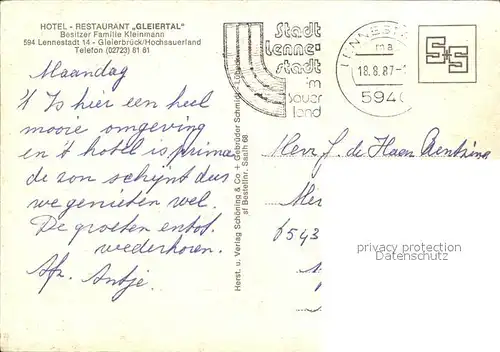 HOTEL - RESTAURANT „GLEIERTAL“
Besitzer Familie Kleinmann
594 Lennestadt 14 - Gleierbrück/Hochsauerland
Telefon (02723) 81 61
Stadt
Lenne-
stadt
im
sauer
land
LENNESTA
ma
18.8.87-
5940
S+S
Maandag
't Is hier een heel
mooie omgeving
en 't hotel is prima
de zon schijnt dus
we genieten wel.
De groeten en tot
wederhoren.
Afz. Antje.
Herst. u. Verlag Schöning & Co + Gebrüder Schmidt
sf Bestellnr. Sasth 66
Mevr J. de Haan
6543
privacy protection
Datenschutz